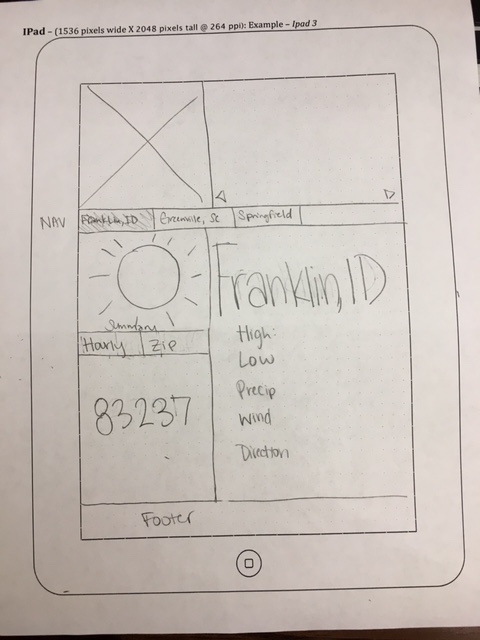 IPad – (1536 pixels wide X 2048 pixels tall @ 264 ppi): Example – Ipad 3
NAV
Franklin, ID Greenville, SC Springfield
Franklin, ID
Summary
Hourly Zip
High:
Low
Precip
Wind
Direction
83237
Footer